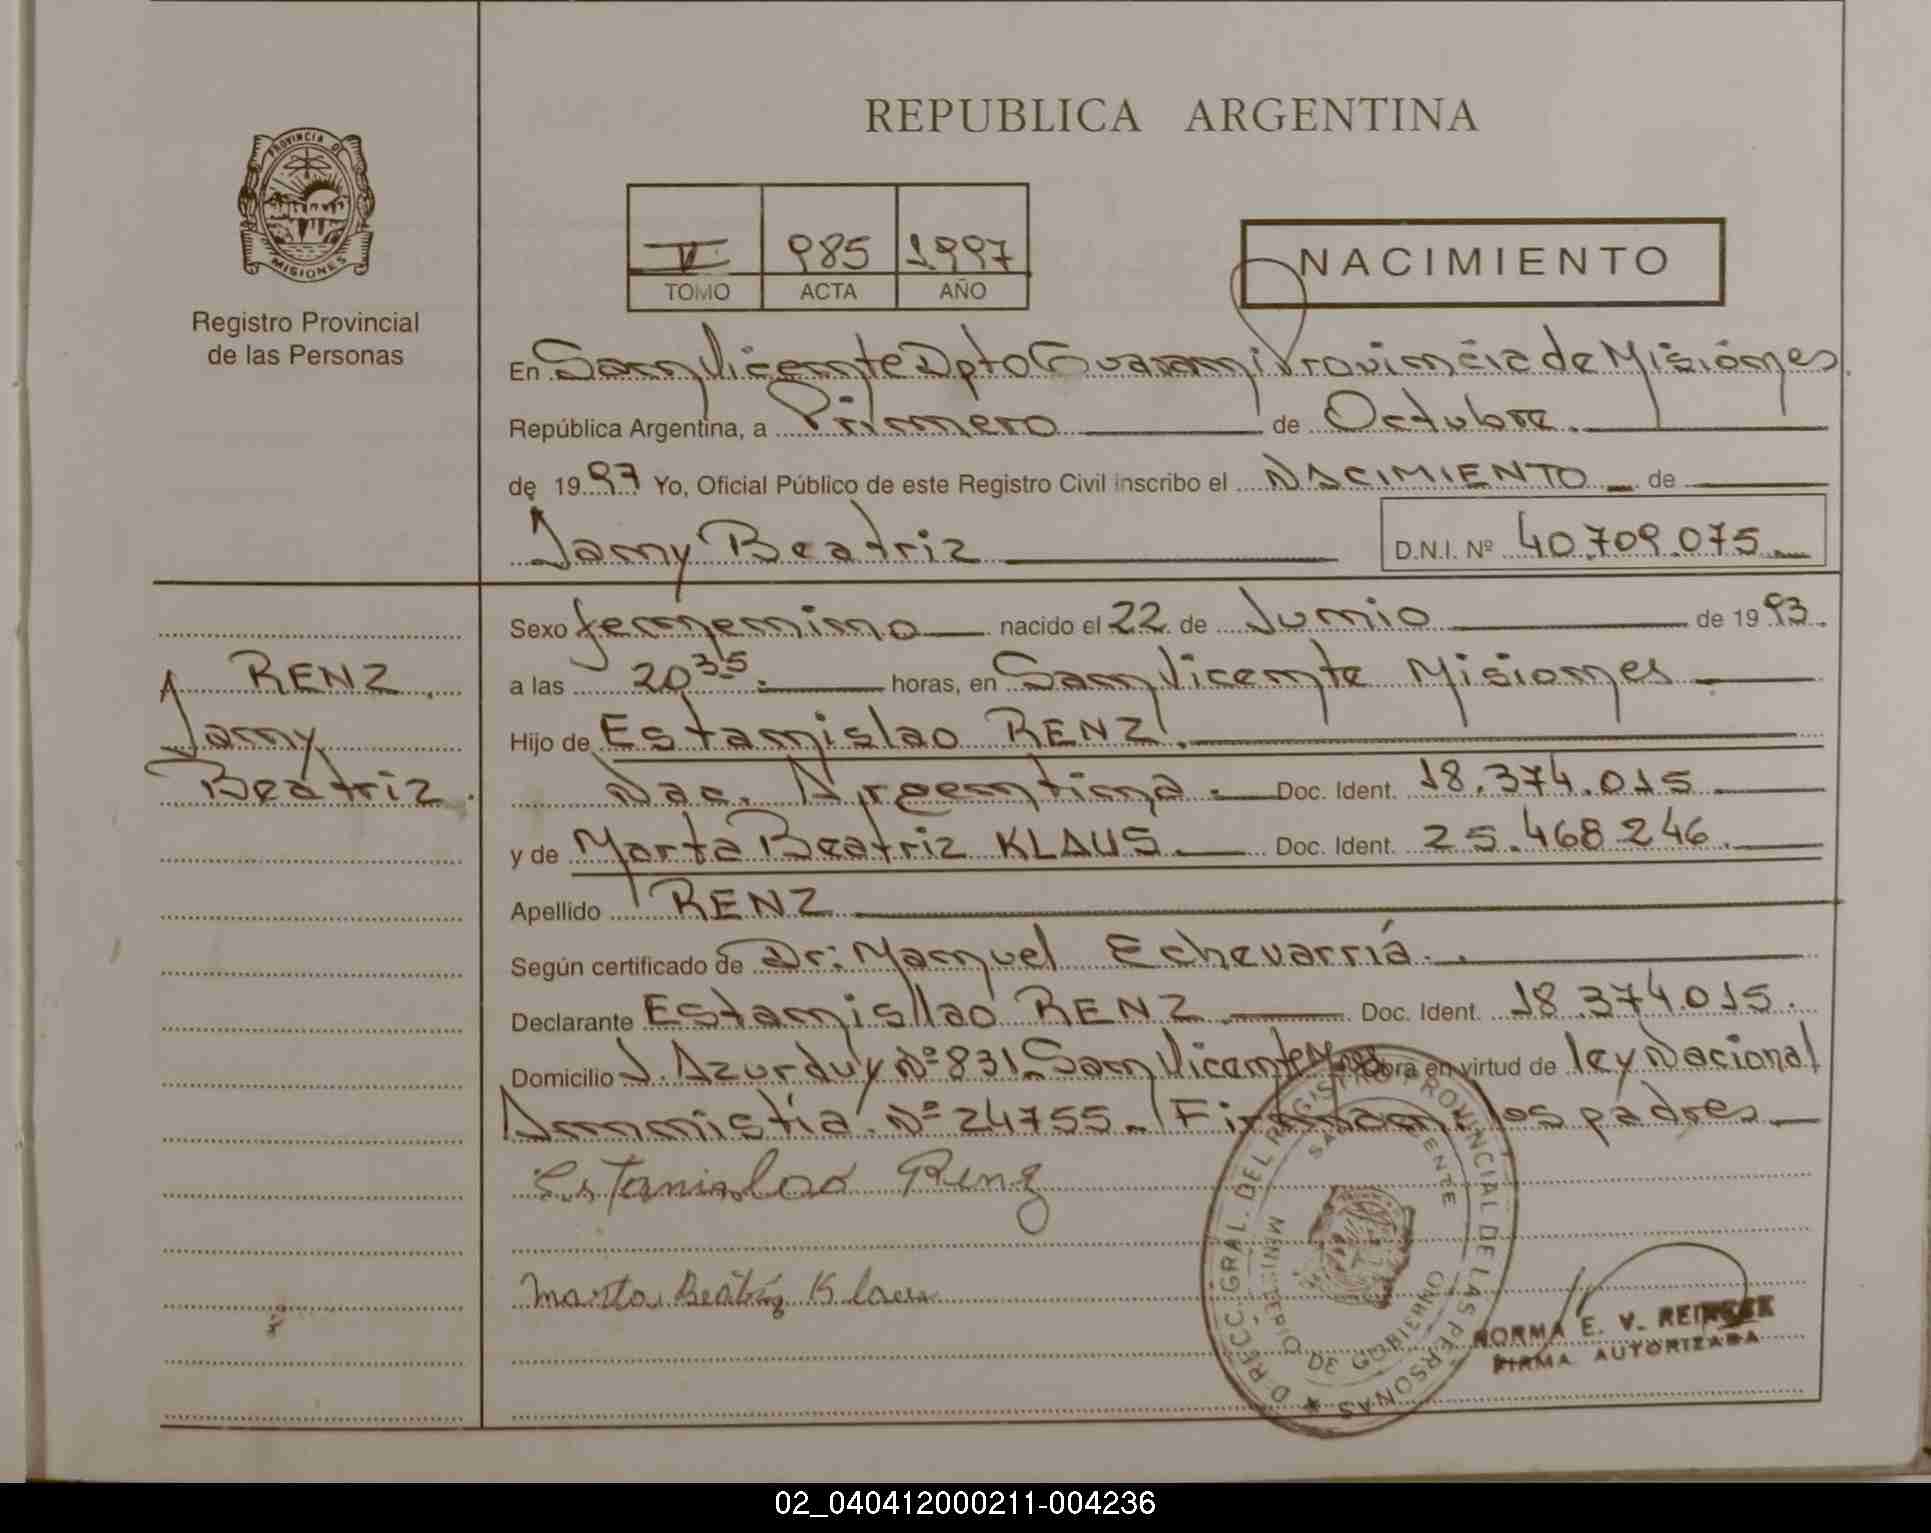 REPUBLICA ARGENTINA
PROVINCIA DE
MISIONES
Registro Provincial
de las Personas
V 985 1997
TOMO ACTA AÑO
NACIMIENTO
En San Vicente Dpto Guarani Provincia de Misiones
República Argentina, a Primero de Octubre.
de 1997 Yo, Oficial Público de este Registro Civil inscribo el NACIMIENTO de
Jany Beatriz D.N.I. Nº 40.709.075
Sexo femenino nacido el 22 de Junio de 1993.
RENZ
Jany
Beatriz.
a las 20 35 horas, en San Vicente Misiones
Hijo de Estanislao RENZ.
Nac. Argentina. Doc. Ident. 18.374.015
y de Marta Beatriz KLAUS. Doc. Ident. 25.468246.
Apellido RENZ
Según certificado de Dr: Manuel Echevarría.
Declarante Estanisllao RENZ Doc. Ident. 18.374.015.
Domicilio J. Azurduy Nº 831. San Vicente Mnes Obra en virtud de ley Nacional
Amnistia Nº 24755. Firman los padres
Estanislao Renz
Marta Beatriz Klaus
DIRECC. GRAL. DEL REGISTRO PROVINCIAL DE LAS PERSONAS
SAN VICENTE
MINISTERIO DE GOBIERNO
NORMA E. V.
FIRMA AUTORIZADA
02_040412000211-004236